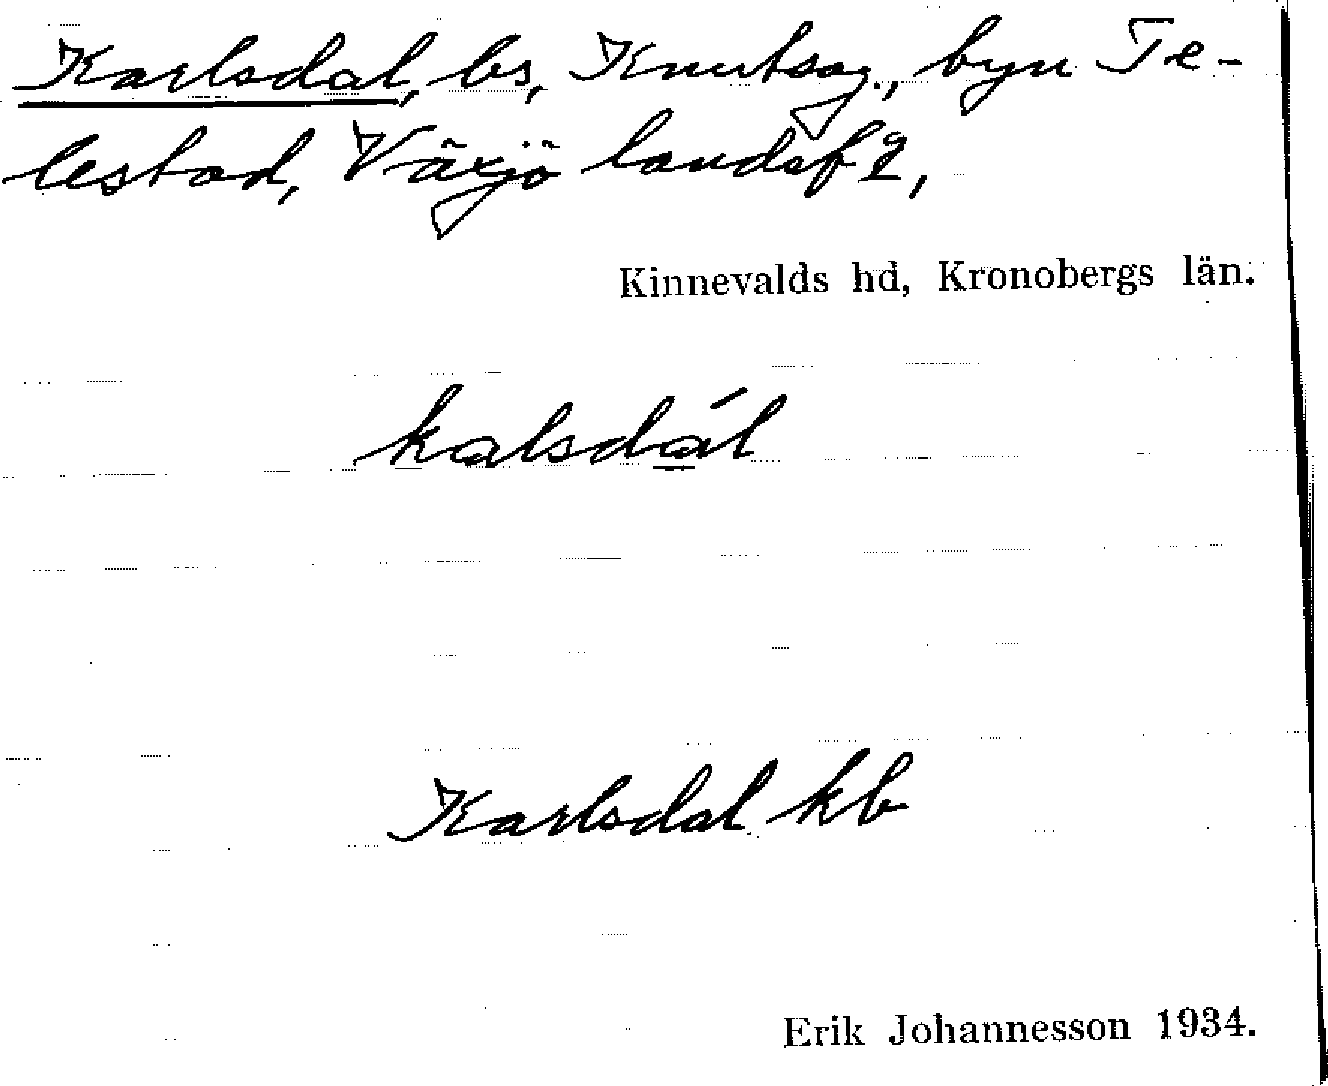 Karlsdal, bs, Knutsag., byn Te-
lestad, Växjö landsfg,
Kinnevalds hd, Kronobergs län.
kalsdál
Karlsdal kb
Erik Johannesson 1934.